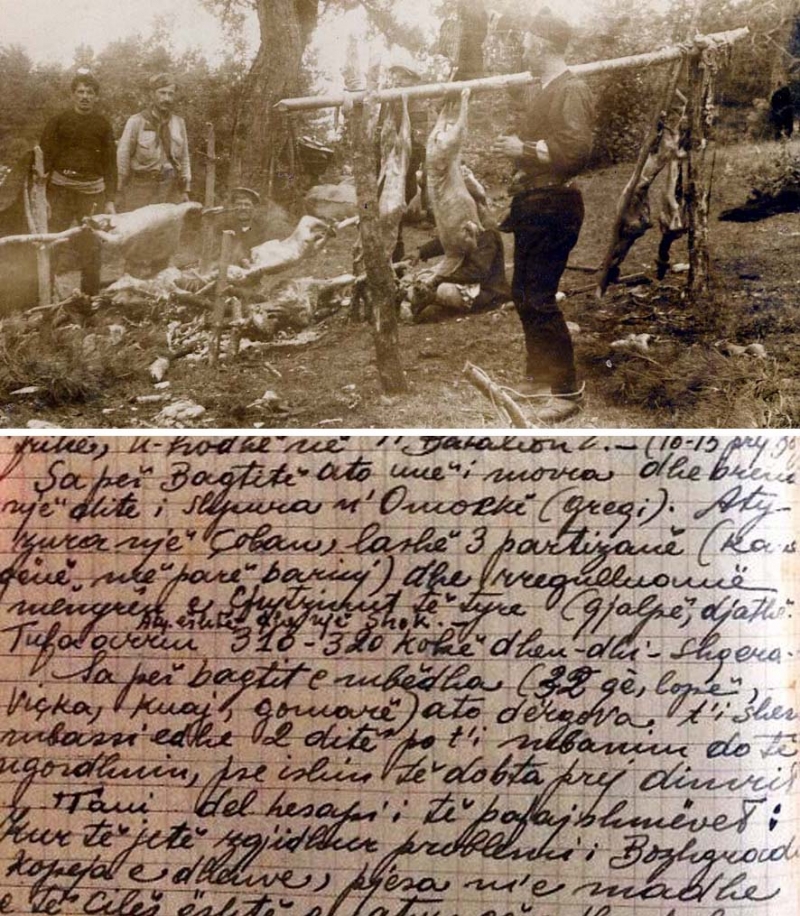 në Batalion I. – (10-15 prej
Sa për Bagëtitë ato unë i mora dhe brenda
një dite i shpura n' Omockë (gregi). Aty
zura një Çoban, lashë 3 partizanë (ka
qënë më parë barinj) dhe rregulluomë
mënyrën e shfrytzimit të tyre (gjalpë, djathë.
Aty është dhe një Shok. –
Tufa 310-320 kokë dhen-dhi-shqera-
Sa për bagtit e mbëdha (32 qe, lopë,
Viçka, kuaj, gomarë) ato dërgova t'i
mbassi edhe 2 ditë po t'i mbanim do të
ngordhnin, pse ishin të dobta prej dimrit
Tani del hesapi i të pafajshmëvet:
Kur të jetë zgjidhur problemi i Bozhgradi
kopeja e dhenve, pjesa më e madhe
e të cilës është e